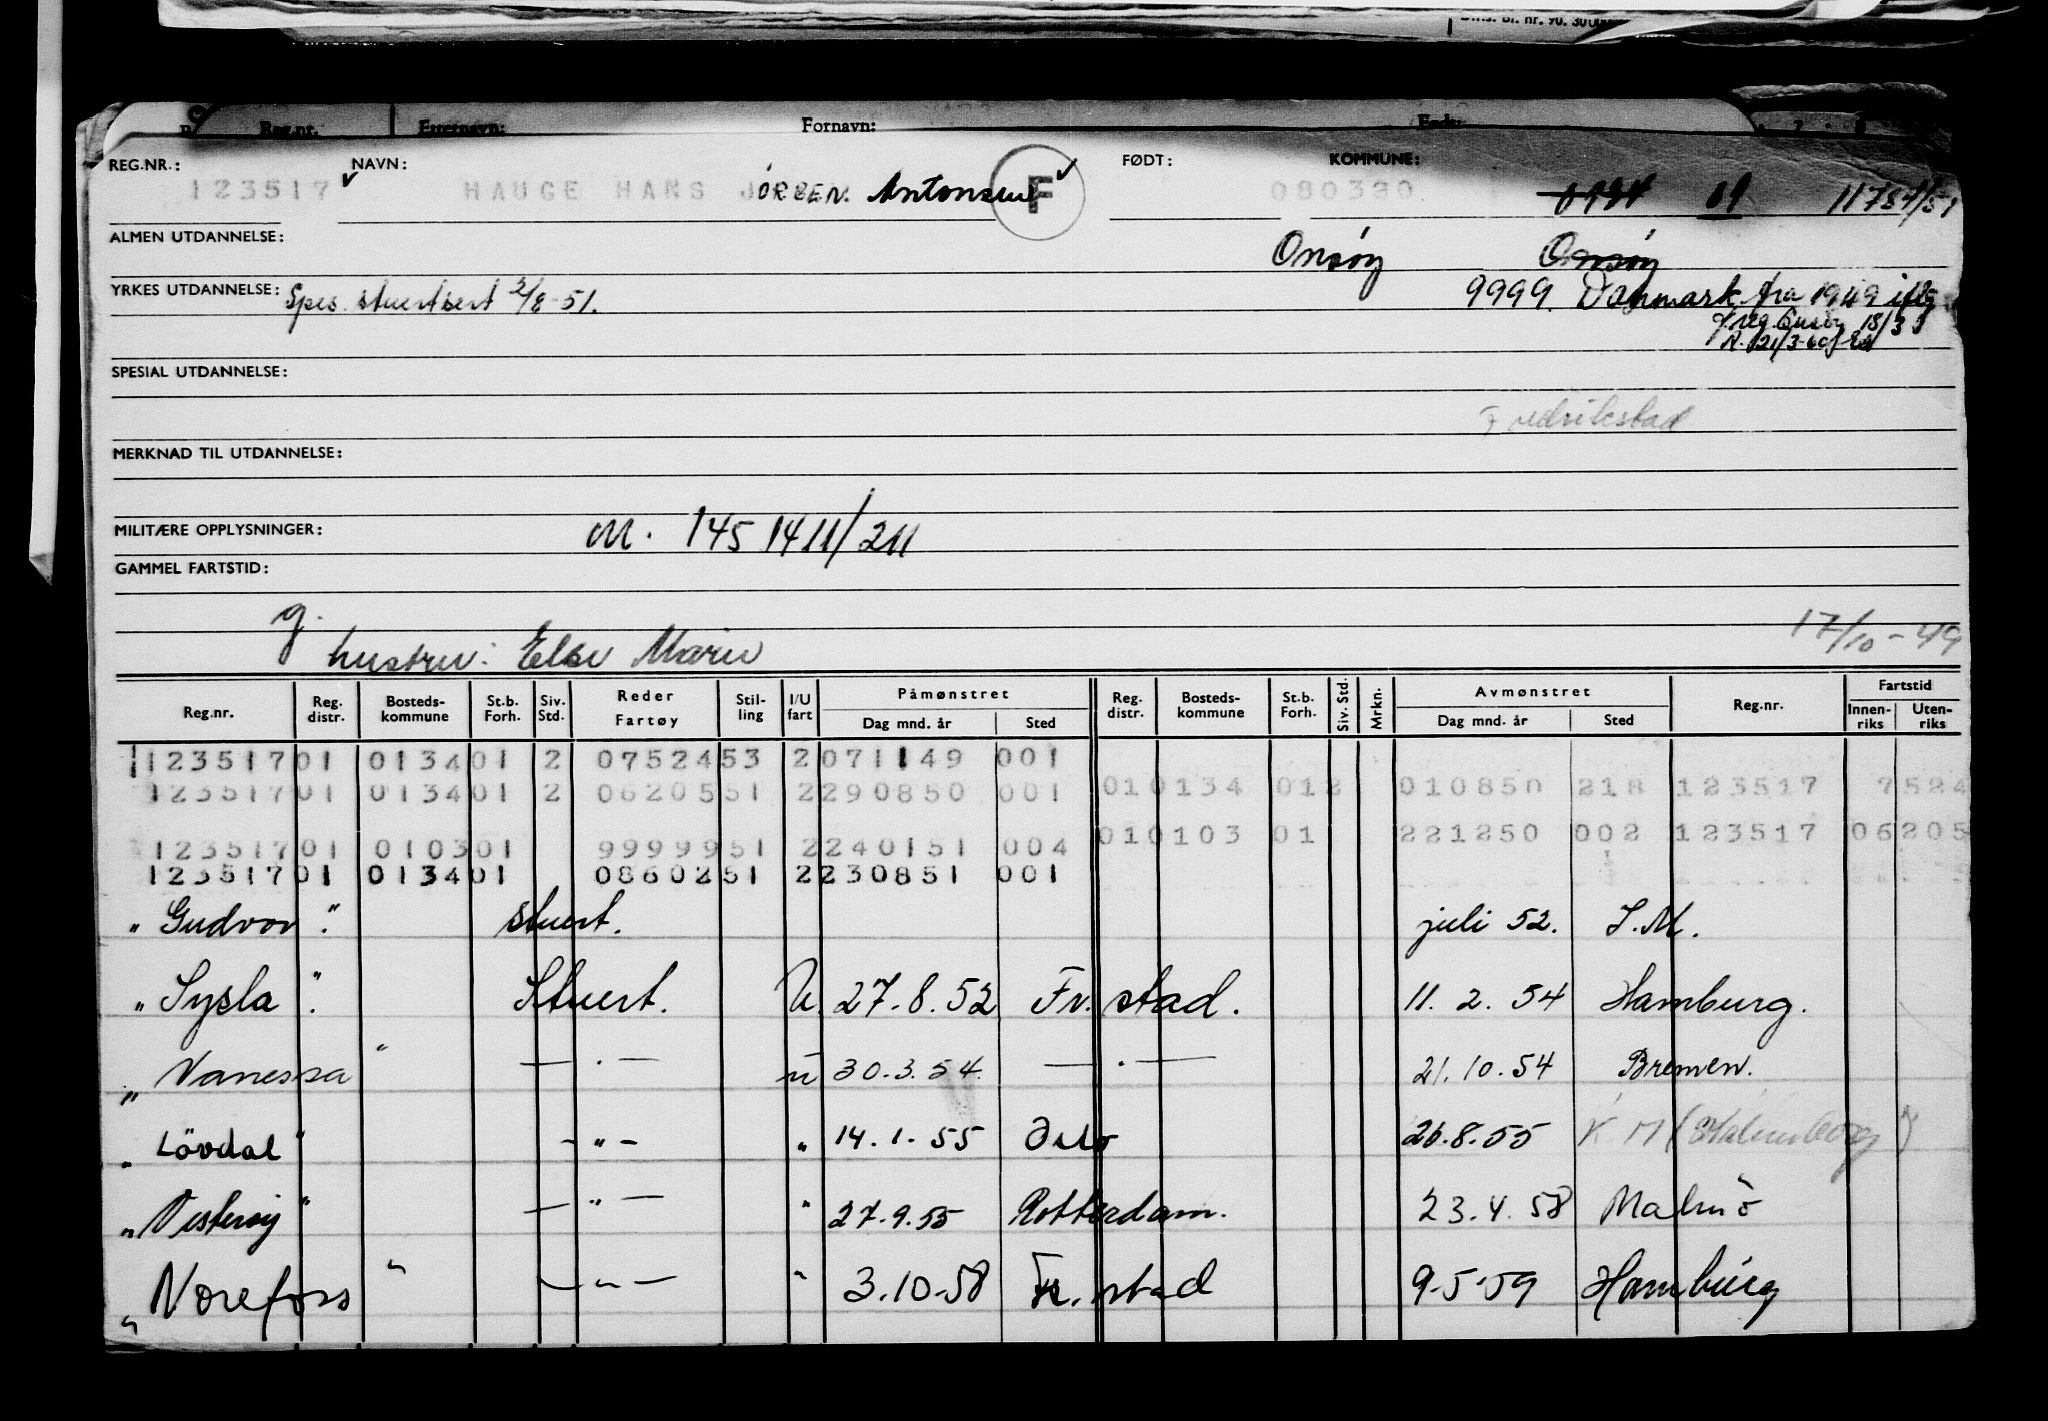 Reg.nr. Etternavn: Fornavn: Født:
REG.NR.: NAVN: FØDT: KOMMUNE:
123517 HAUGE HANS JØRGEN Antonsen F 080320 0134 01 11784/51
ALMEN UTDANNELSE: Onsöy Onsöy
YRKES UTDANNELSE: Spes. stuertsert 3/8-51. 9999. Danmark fra 1949 iflg
18/3
21/3-60
SPESIAL UTDANNELSE:
Fredrikstad
MERKNAD TIL UTDANNELSE:
MILITÆRE OPPLYSNINGER: M. 145 1411/211
GAMMEL FARTSTID:
g. 17/10-49
hustru: Else Marie
Reg.nr. Reg. distr. Bosteds-kommune St.b. Forh. Siv. Std. Reder Fartøy Stil-ling I/U fart Påmønstret Dag mnd. år Sted Reg. distr. Bosteds-kommune St.b. Forh. Siv. Std. Mrkn. Avmønstret Dag mnd. år Sted Reg.nr. Fartstid Innen-riks Uten-riks
123517 01 0134 01 2 07524 53 2 071149 001
123517 01 0134 01 2 06205 51 2 290850 001 01 0134 01 2 010850 218 123517 7524
123517 01 0103 01 99999 51 2 240151 004 01 0103 01 221250 002 123517 06205
123517 01 0134 01 08602 51 2 230851 001
" Gudvor " stuert. juli 52. S.M.
" Sysla " Stuert. U. 27.8.52 Fr.stad. 11.2.54 Hamburg.
" Vanessa " — . — u 30.3.54. — . — 21.10.54 Bremen.
" Lövdal " — " — " 14.1.55 Oslo 26.8.55 K M
" Vesteröy " — " — " 27.9.55 Rotterdam. 23.4.58 Malmö
" Norefoss " — " — " 3.10.58 Fr.stad 9.5.59 Hamburg